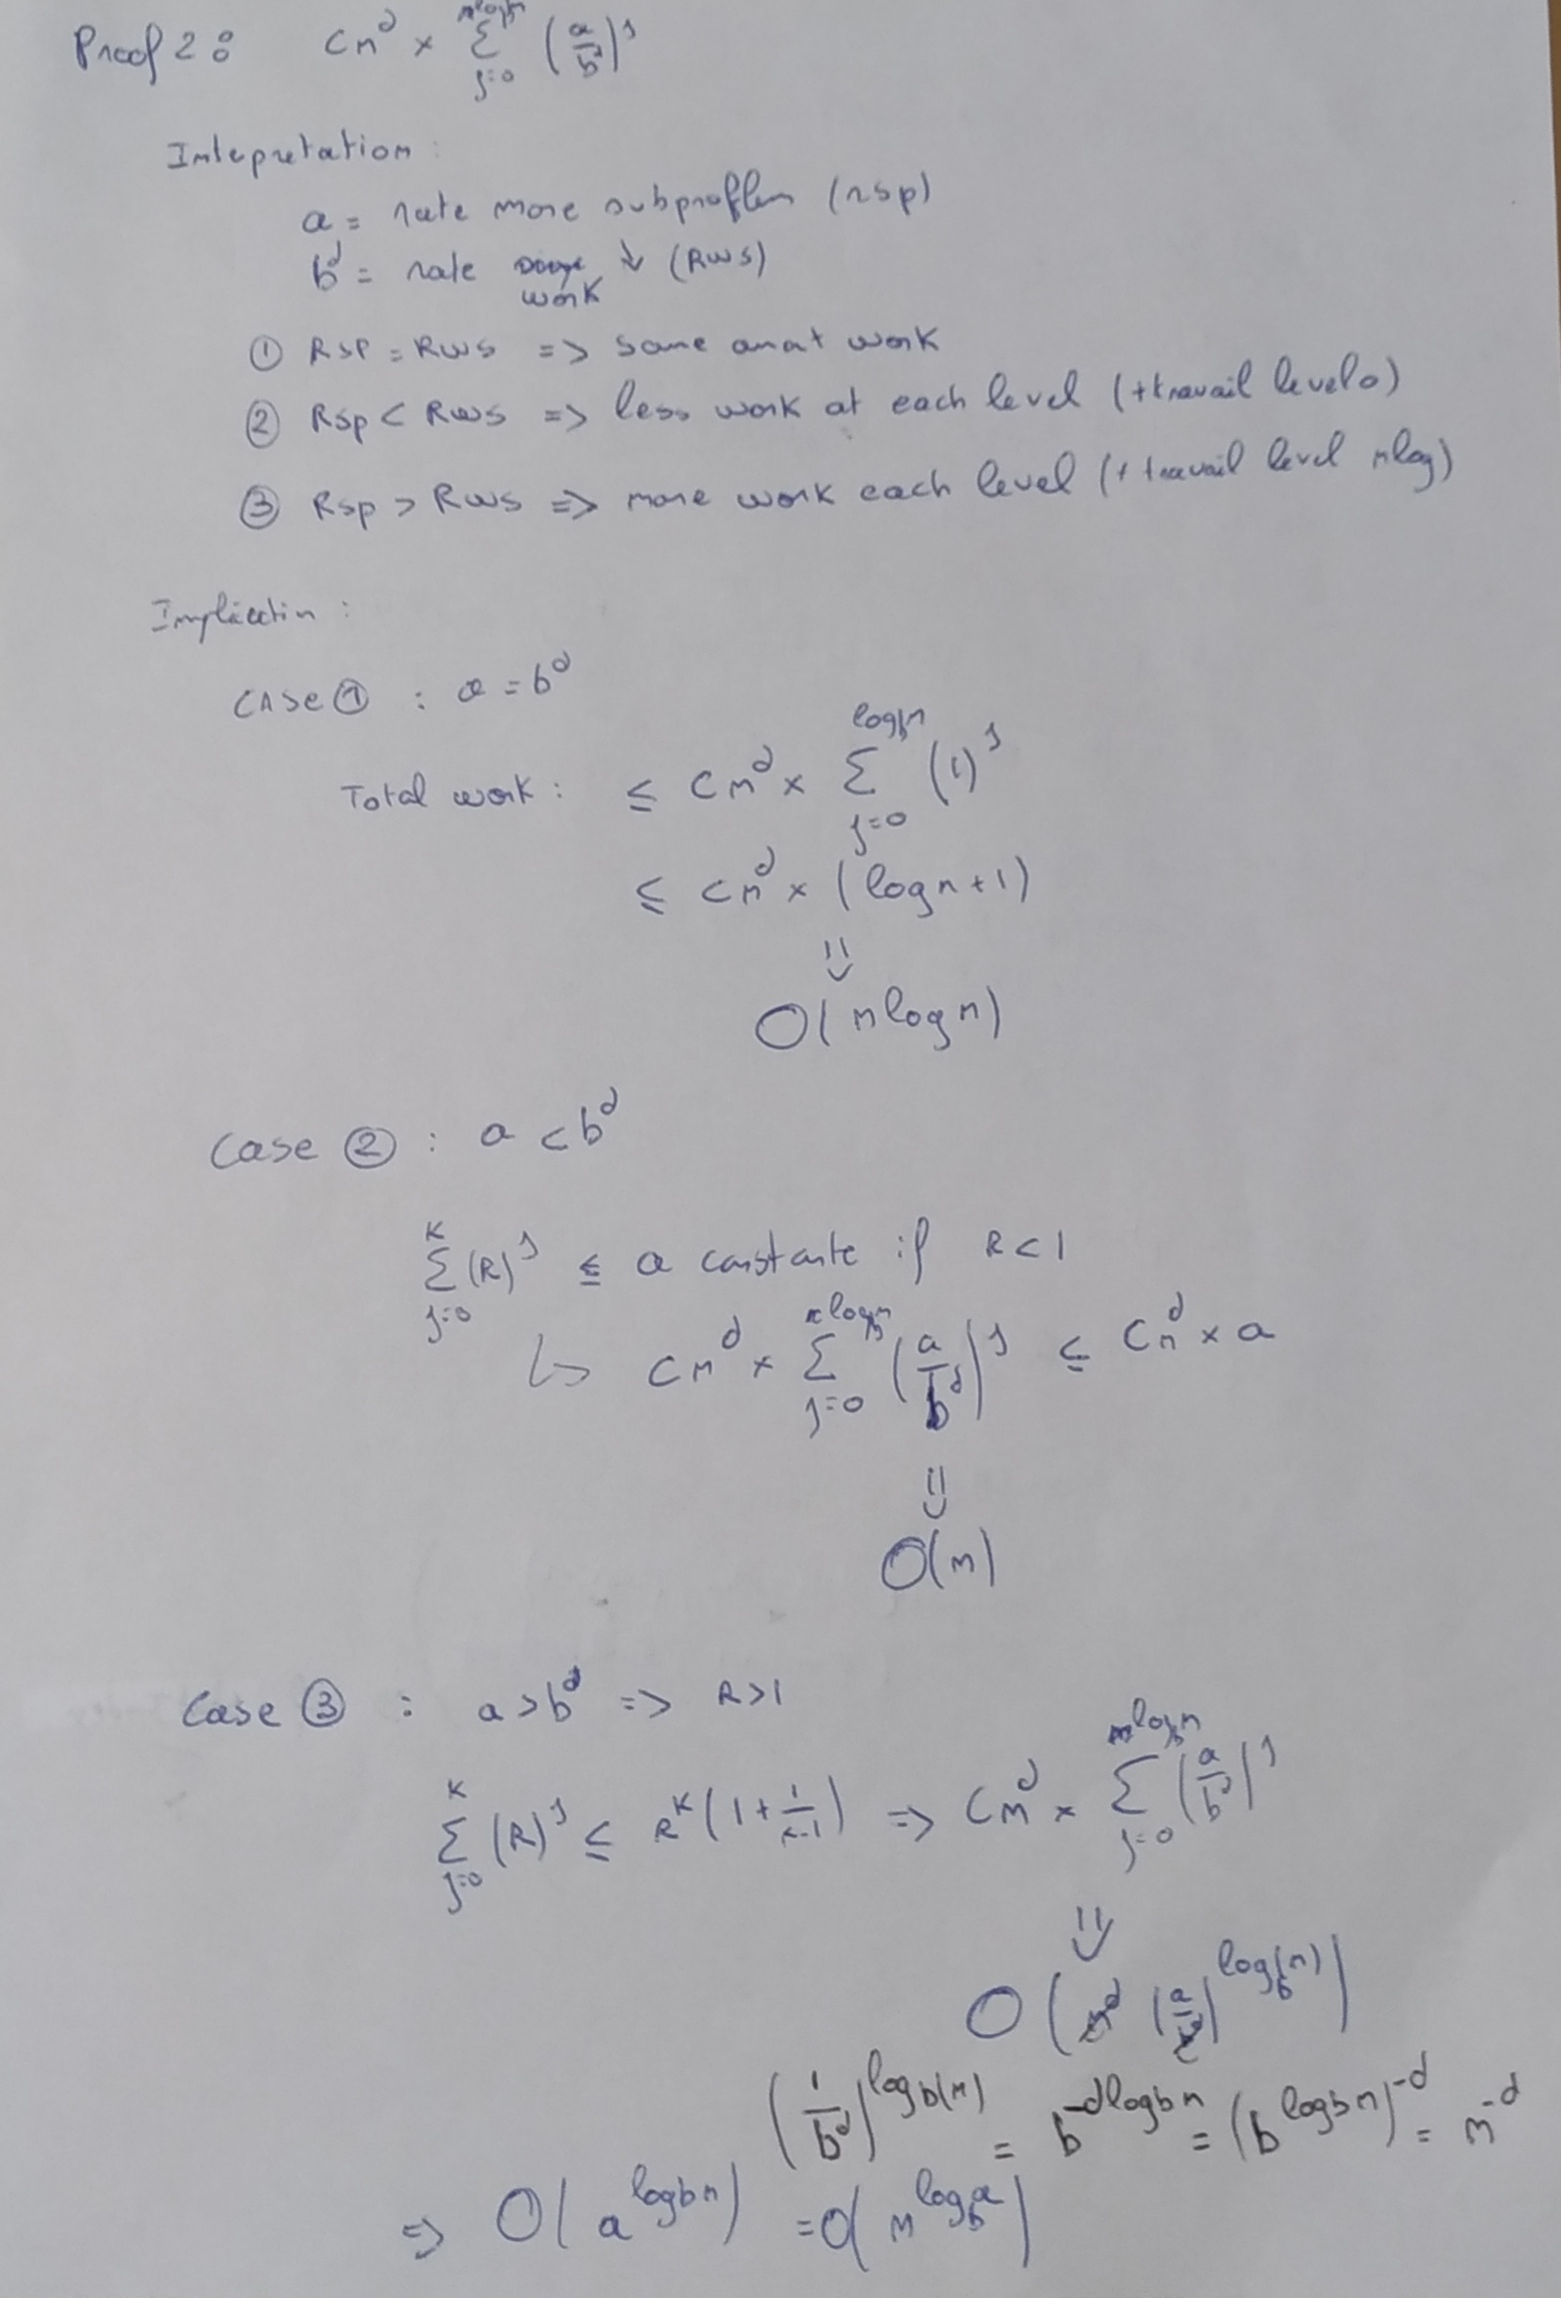 Proof 2 : Cn^d × Σ_{j=0}^{logbn} (a/b^d)^j
Intepretation :
a = rate more subproblem (rsp)
b^d = rate work ↓ (RWS)
① RSP = RWS => same amat work
② Rsp < RWS => less work at each level (+travail level 0)
③ Rsp > RWS => more work each level (+ travail level nlog)
Implication :
CASE ① : a = b^d
Total work : ≤ Cn^d × Σ_{j=0}^{logbn} (1)^j
≤ Cn^d × (log n + 1)
=> O(n log n)
Case ② : a < b^d
Σ_{j=0}^{K} (R)^j ≤ a constante if R < 1
↳ Cn^d × Σ_{j=0}^{logbn} (a/b^d)^j ≤ Cn^d × a
=> O(n)
Case ③ : a > b^d => R > 1
Σ_{j=0}^{K} (R)^j ≤ R^K (1 + 1/(r-1)) => Cn^d × Σ_{j=0}^{logbn} (a/b^d)^j
=> O(n^d (a/b^d)^{logb(n)})
(1/b^d)^{logb(n)} = b^{-dlogbn} = (b^{logbn})^{-d} = n^{-d}
=> O(a^{logbn}) = O(n^{logba})